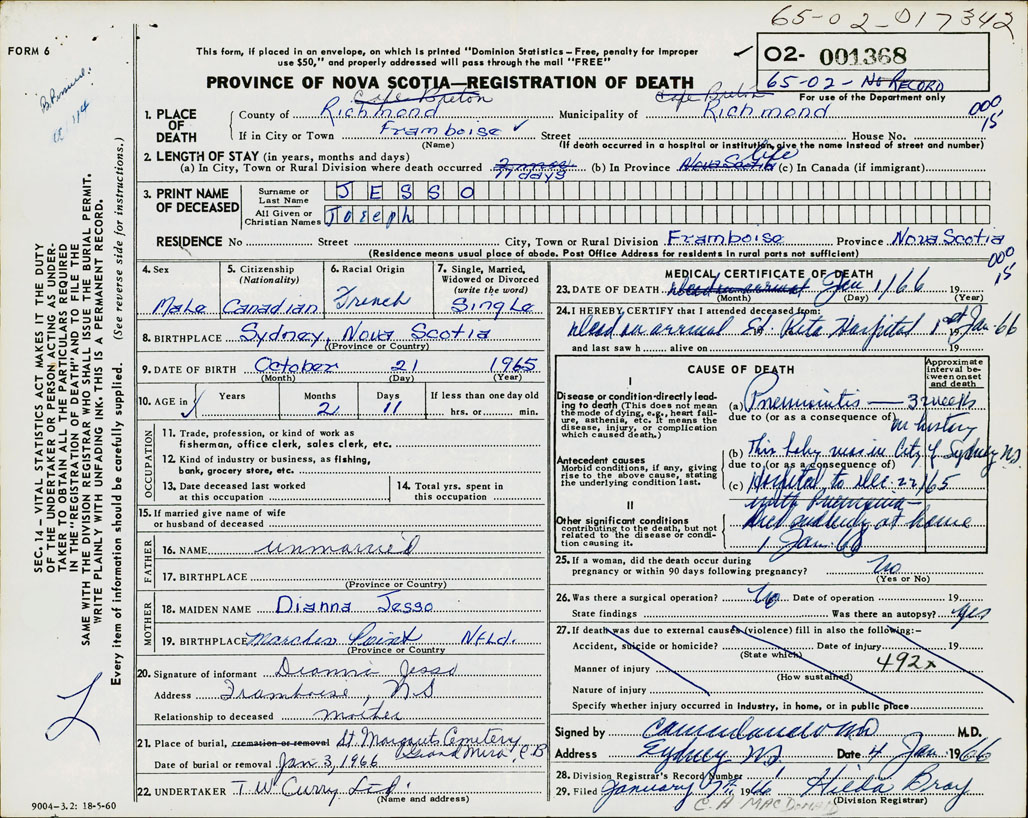 65-02-017342
FORM 6
This form, if placed in an envelope, on which is printed "Dominion Statistics – Free, penalty for improper
use $50," and properly addressed will pass through the mail "FREE"
✓ 02- 001368
65-02- No RECORD
For use of the Department only
PROVINCE OF NOVA SCOTIA—REGISTRATION OF DEATH
Cape Breton Cape Breton
1. PLACE OF DEATH
County of Richmond Municipality of Richmond
000
15
If in City or Town Framboise ✓ Street House No.
(Name) (If death occurred in a hospital or institution, give the name instead of street and number)
2. LENGTH OF STAY (in years, months and days)
(a) In City, Town or Rural Division where death occurred 11 days (b) In Province Nova Scotia Life (c) In Canada (if immigrant)
3. PRINT NAME OF DECEASED
Surname or Last Name JESSO
All Given or Christian Names Joseph
RESIDENCE No Street City, Town or Rural Division Framboise Province Nova Scotia
(Residence means usual place of abode. Post Office Address for residents in rural parts not sufficient)
000
15
4. Sex Male
5. Citizenship (Nationality) Canadian
6. Racial Origin French
7. Single, Married, Widowed or Divorced (write the word) Single
8. BIRTHPLACE Sydney, Nova Scotia
(Province or Country)
9. DATE OF BIRTH October 21 1965
(Month) (Day) (Year)
10. AGE in Years Months 2 Days 11 If less than one day old hrs. or min.
OCCUPATION
11. Trade, profession, or kind of work as
fisherman, office clerk, sales clerk, etc.
12. Kind of industry or business, as fishing,
bank, grocery store, etc.
13. Date deceased last worked
at this occupation
14. Total yrs. spent in
this occupation
15. If married give name of wife
or husband of deceased
FATHER
16. NAME unmarried
17. BIRTHPLACE
(Province or Country)
MOTHER
18. MAIDEN NAME Dianna Jesso
19. BIRTHPLACE Marches Point Nfld.
(Province or Country
20. Signature of informant Dianna Jesso
Address Framboise, NS
Relationship to deceased mother
21. Place of burial, cremation or removal St Margarets Cemetery
Grand Mira, C B
Date of burial or removal Jan 3, 1966
22. UNDERTAKER T W Curry Ltd.
(Name and address)
MEDICAL CERTIFICATE OF DEATH
23. DATE OF DEATH Dead on arrival Jan 1/66 19
(Month) (Day) (Year)
24. I HEREBY CERTIFY that I attended deceased from:
Dead on arrival St Rita Hospital 1st Jan 66
and last saw h alive on 19
CAUSE OF DEATH
Approximate interval between onset and death
I
Disease or condition directly leading to death (This does not mean the mode of dying, e.g., heart failure, asthenia, etc. It means the disease, injury, or complication which caused death.)
(a) Pneumonitis — 3 weeks
due to (or as a consequence of) by history
Antecedent causes
Morbid conditions, if any, giving rise to the above cause, stating the underlying condition last.
(b) This baby was in City of Sydney N.S.
due to (or as a consequence of)
(c) Hospital to Dec. 22/65
with Pneumonia –
II
Other significant conditions contributing to the death, but not related to the disease or condition causing it.
died suddenly at home
1 Jan. 66
25. If a woman, did the death occur during
pregnancy or within 90 days following pregnancy? No
(Yes or No)
26. Was there a surgical operation? No Date of operation 19
State findings Was there an autopsy? Yes
27. If death was due to external causes (violence) fill in also the following:–
Accident, suicide or homicide? Date of injury 19
(State which)
Manner of injury 492x
(How sustained)
Nature of injury
Specify whether injury occurred in industry, in home, or in public place
Signed by M.D.
Address Sydney NS Date 4 Jan 1966
28. Division Registrar's Record Number
29. Filed January 7th 1966 Hilda Bray
(Division Registrar)
C. A MacDonald
SEC. 14 – VITAL STATISTICS ACT MAKES IT THE DUTY
OF THE UNDERTAKER OR PERSON ACTING AS UNDERTAKER TO OBTAIN ALL THE PARTICULARS REQUIRED
IN THE "REGISTRATION OF DEATH" AND TO FILE THE
SAME WITH THE DIVISION REGISTRAR WHO SHALL ISSUE THE BURIAL PERMIT.
WRITE PLAINLY WITH UNFADING INK. THIS IS A PERMANENT RECORD.
Every item of information should be carefully supplied. (See reverse side for instructions.)
9004-3.2: 18-5-60